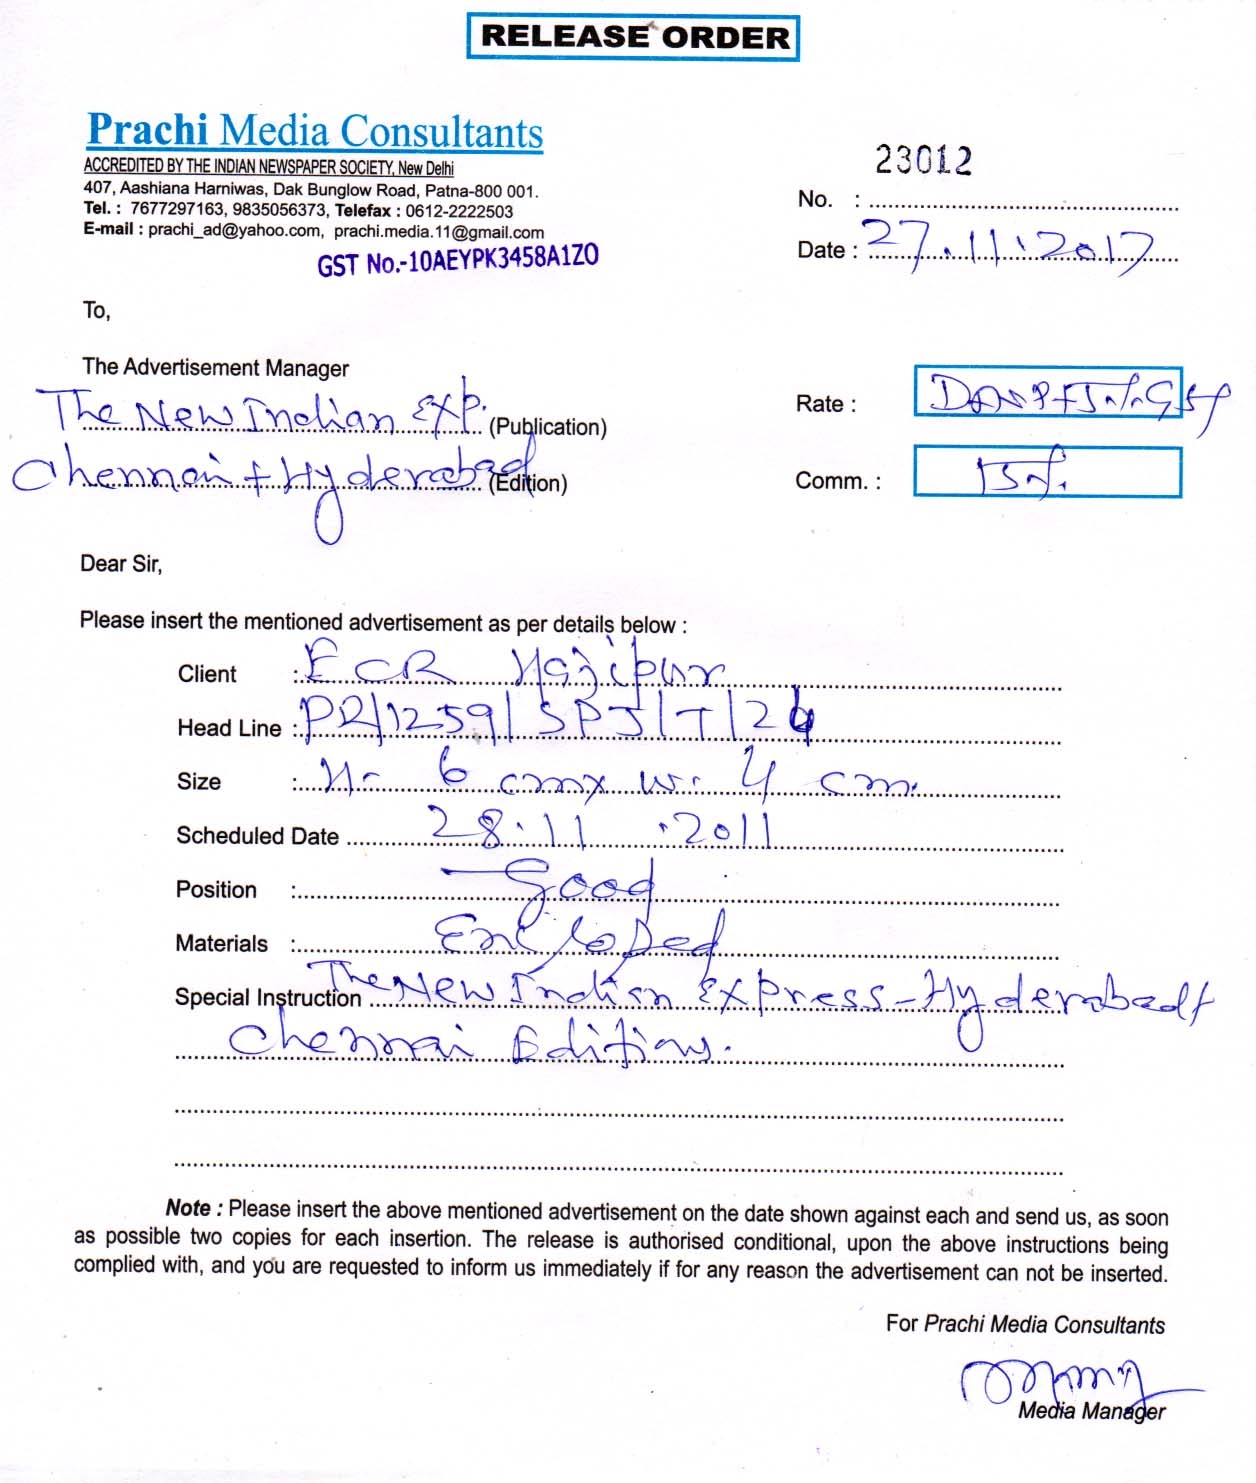 RELEASE ORDER
Prachi Media Consultants
ACCREDITED BY THE INDIAN NEWSPAPER SOCIETY, New Delhi
407, Aashiana Harniwas, Dak Bunglow Road, Patna-800 001.
Tel. : 7677297163, 9835056373, Telefax : 0612-2222503
E-mail : prachi_ad@yahoo.com, prachi.media.11@gmail.com
GST No.-10AEYPK3458A1ZO
No. : 23012
Date : 27.11.2017
To,
The Advertisement Manager
The New Indian Exp. (Publication)
Chennai + Hyderabad (Edition)
Rate : DAVP + 5% GST
Comm. : 15%.
Dear Sir,
Please insert the mentioned advertisement as per details below :
Client : ECR Hajipur
Head Line : PR/1259/SPJ/T/
Size : H- 6 cm x w. 4 cm.
Scheduled Date 28.11.2011
Position : Good
Materials : Enclosed
Special Instruction The New Indian Express - Hyderabad +
Chennai Editions.
Note : Please insert the above mentioned advertisement on the date shown against each and send us, as soon
as possible two copies for each insertion. The release is authorised conditional, upon the above instructions being
complied with, and you are requested to inform us immediately if for any reason the advertisement can not be inserted.
For Prachi Media Consultants
Media Manager